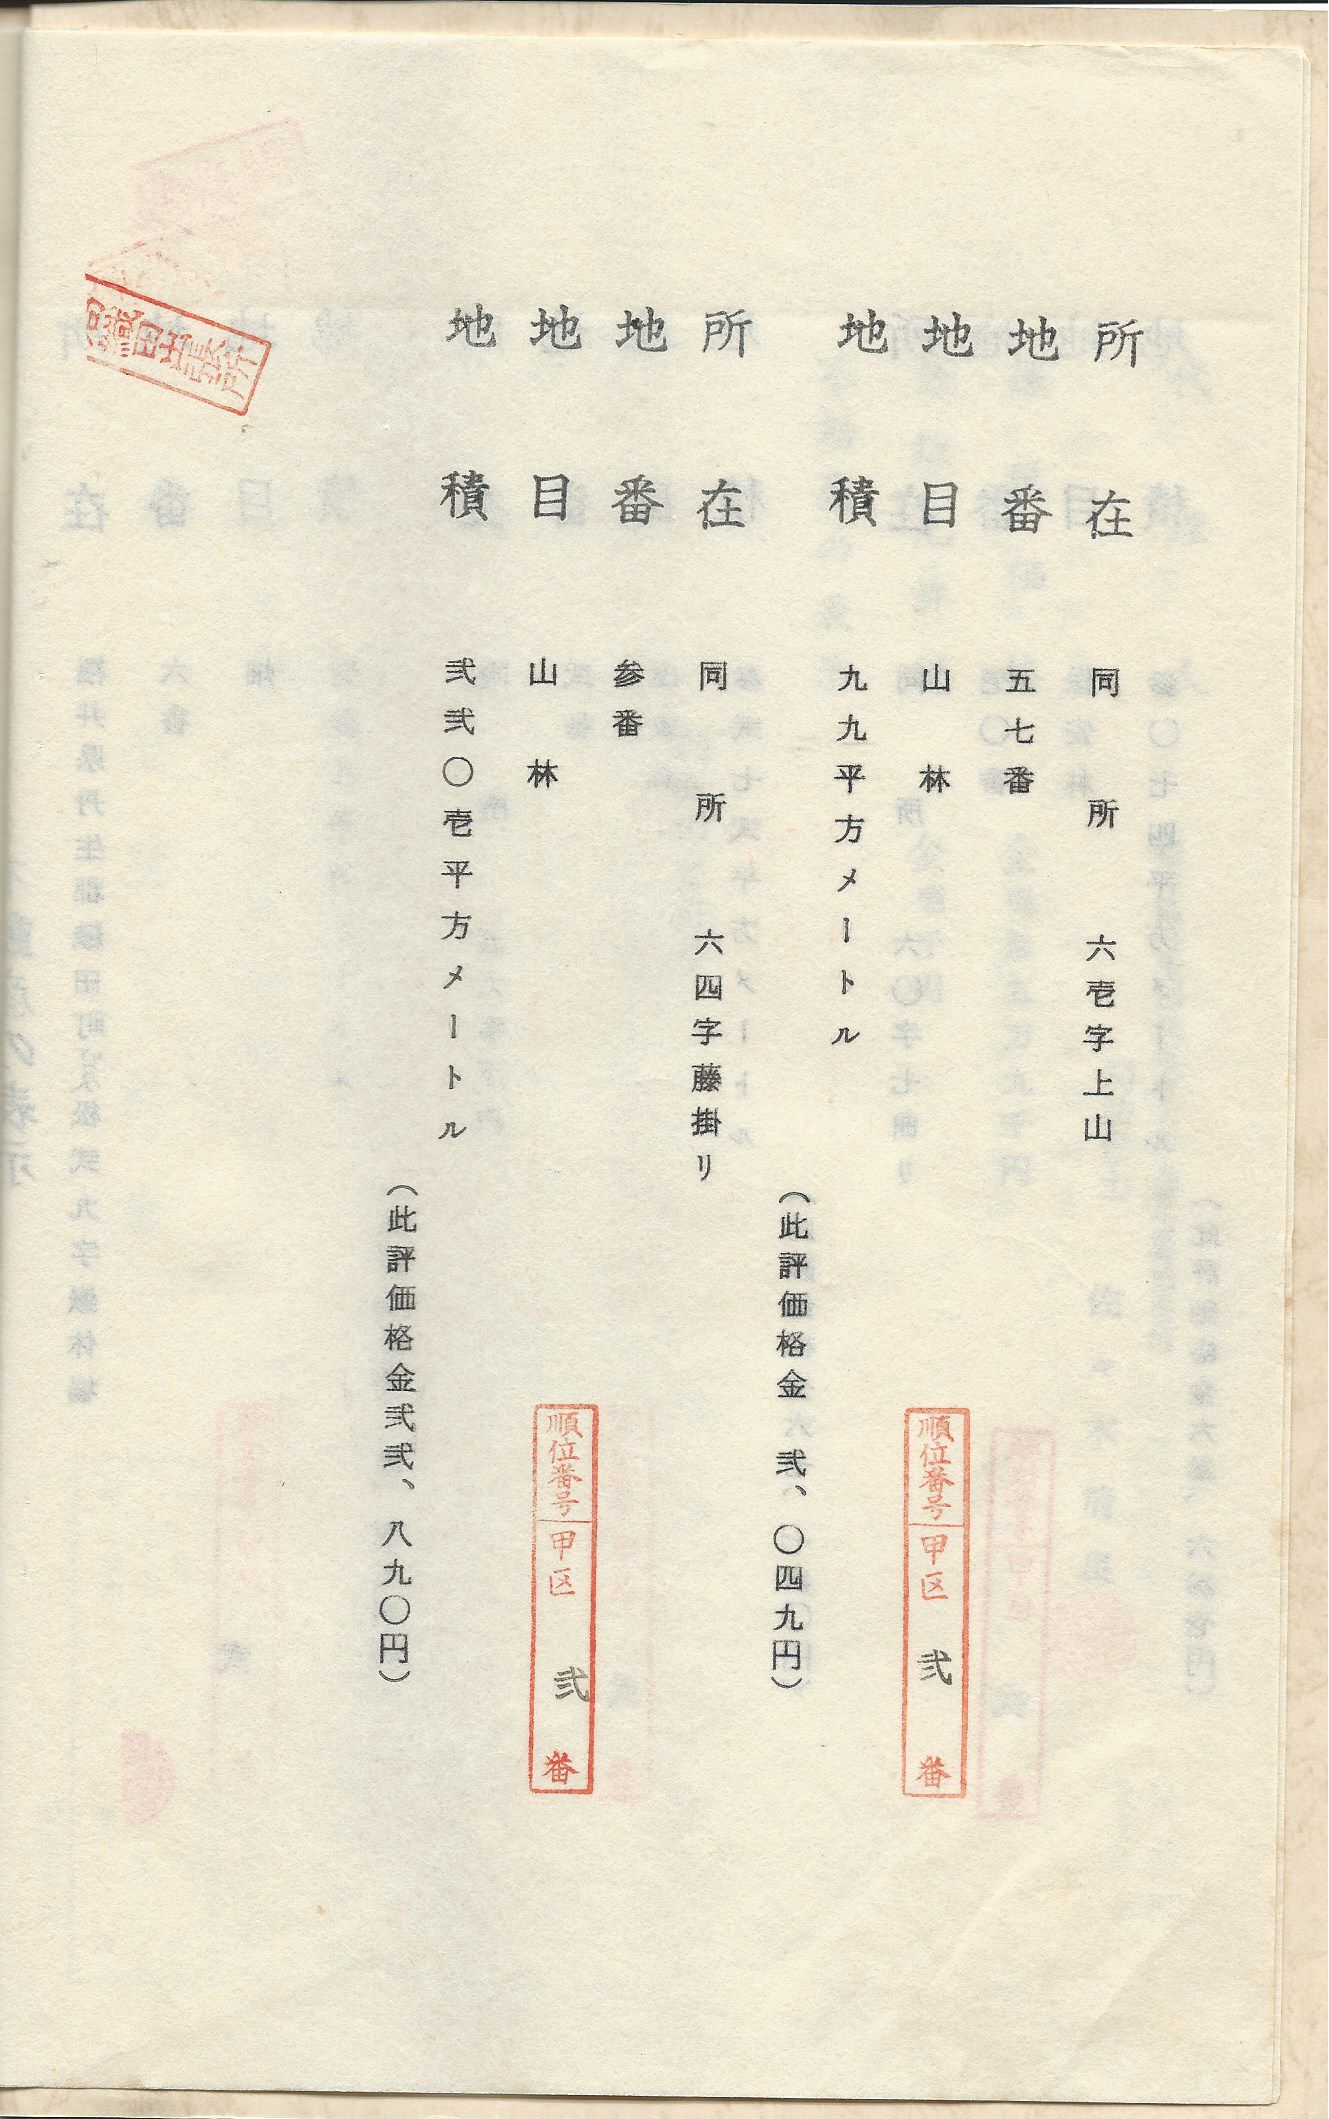 所在 同所 六壱字上山
地番 五七番
地目 山林
地積 九九平方メートル
(此評価格金 弐、〇四九円)
順位番号 甲区 弐 番
所在 同所 六四字藤掛リ
地番 参番
地目 山林
地積 弐弐〇壱平方メートル
(此評価格金弐弐、八九〇円)
順位番号 甲区 弐 番
織田出張所